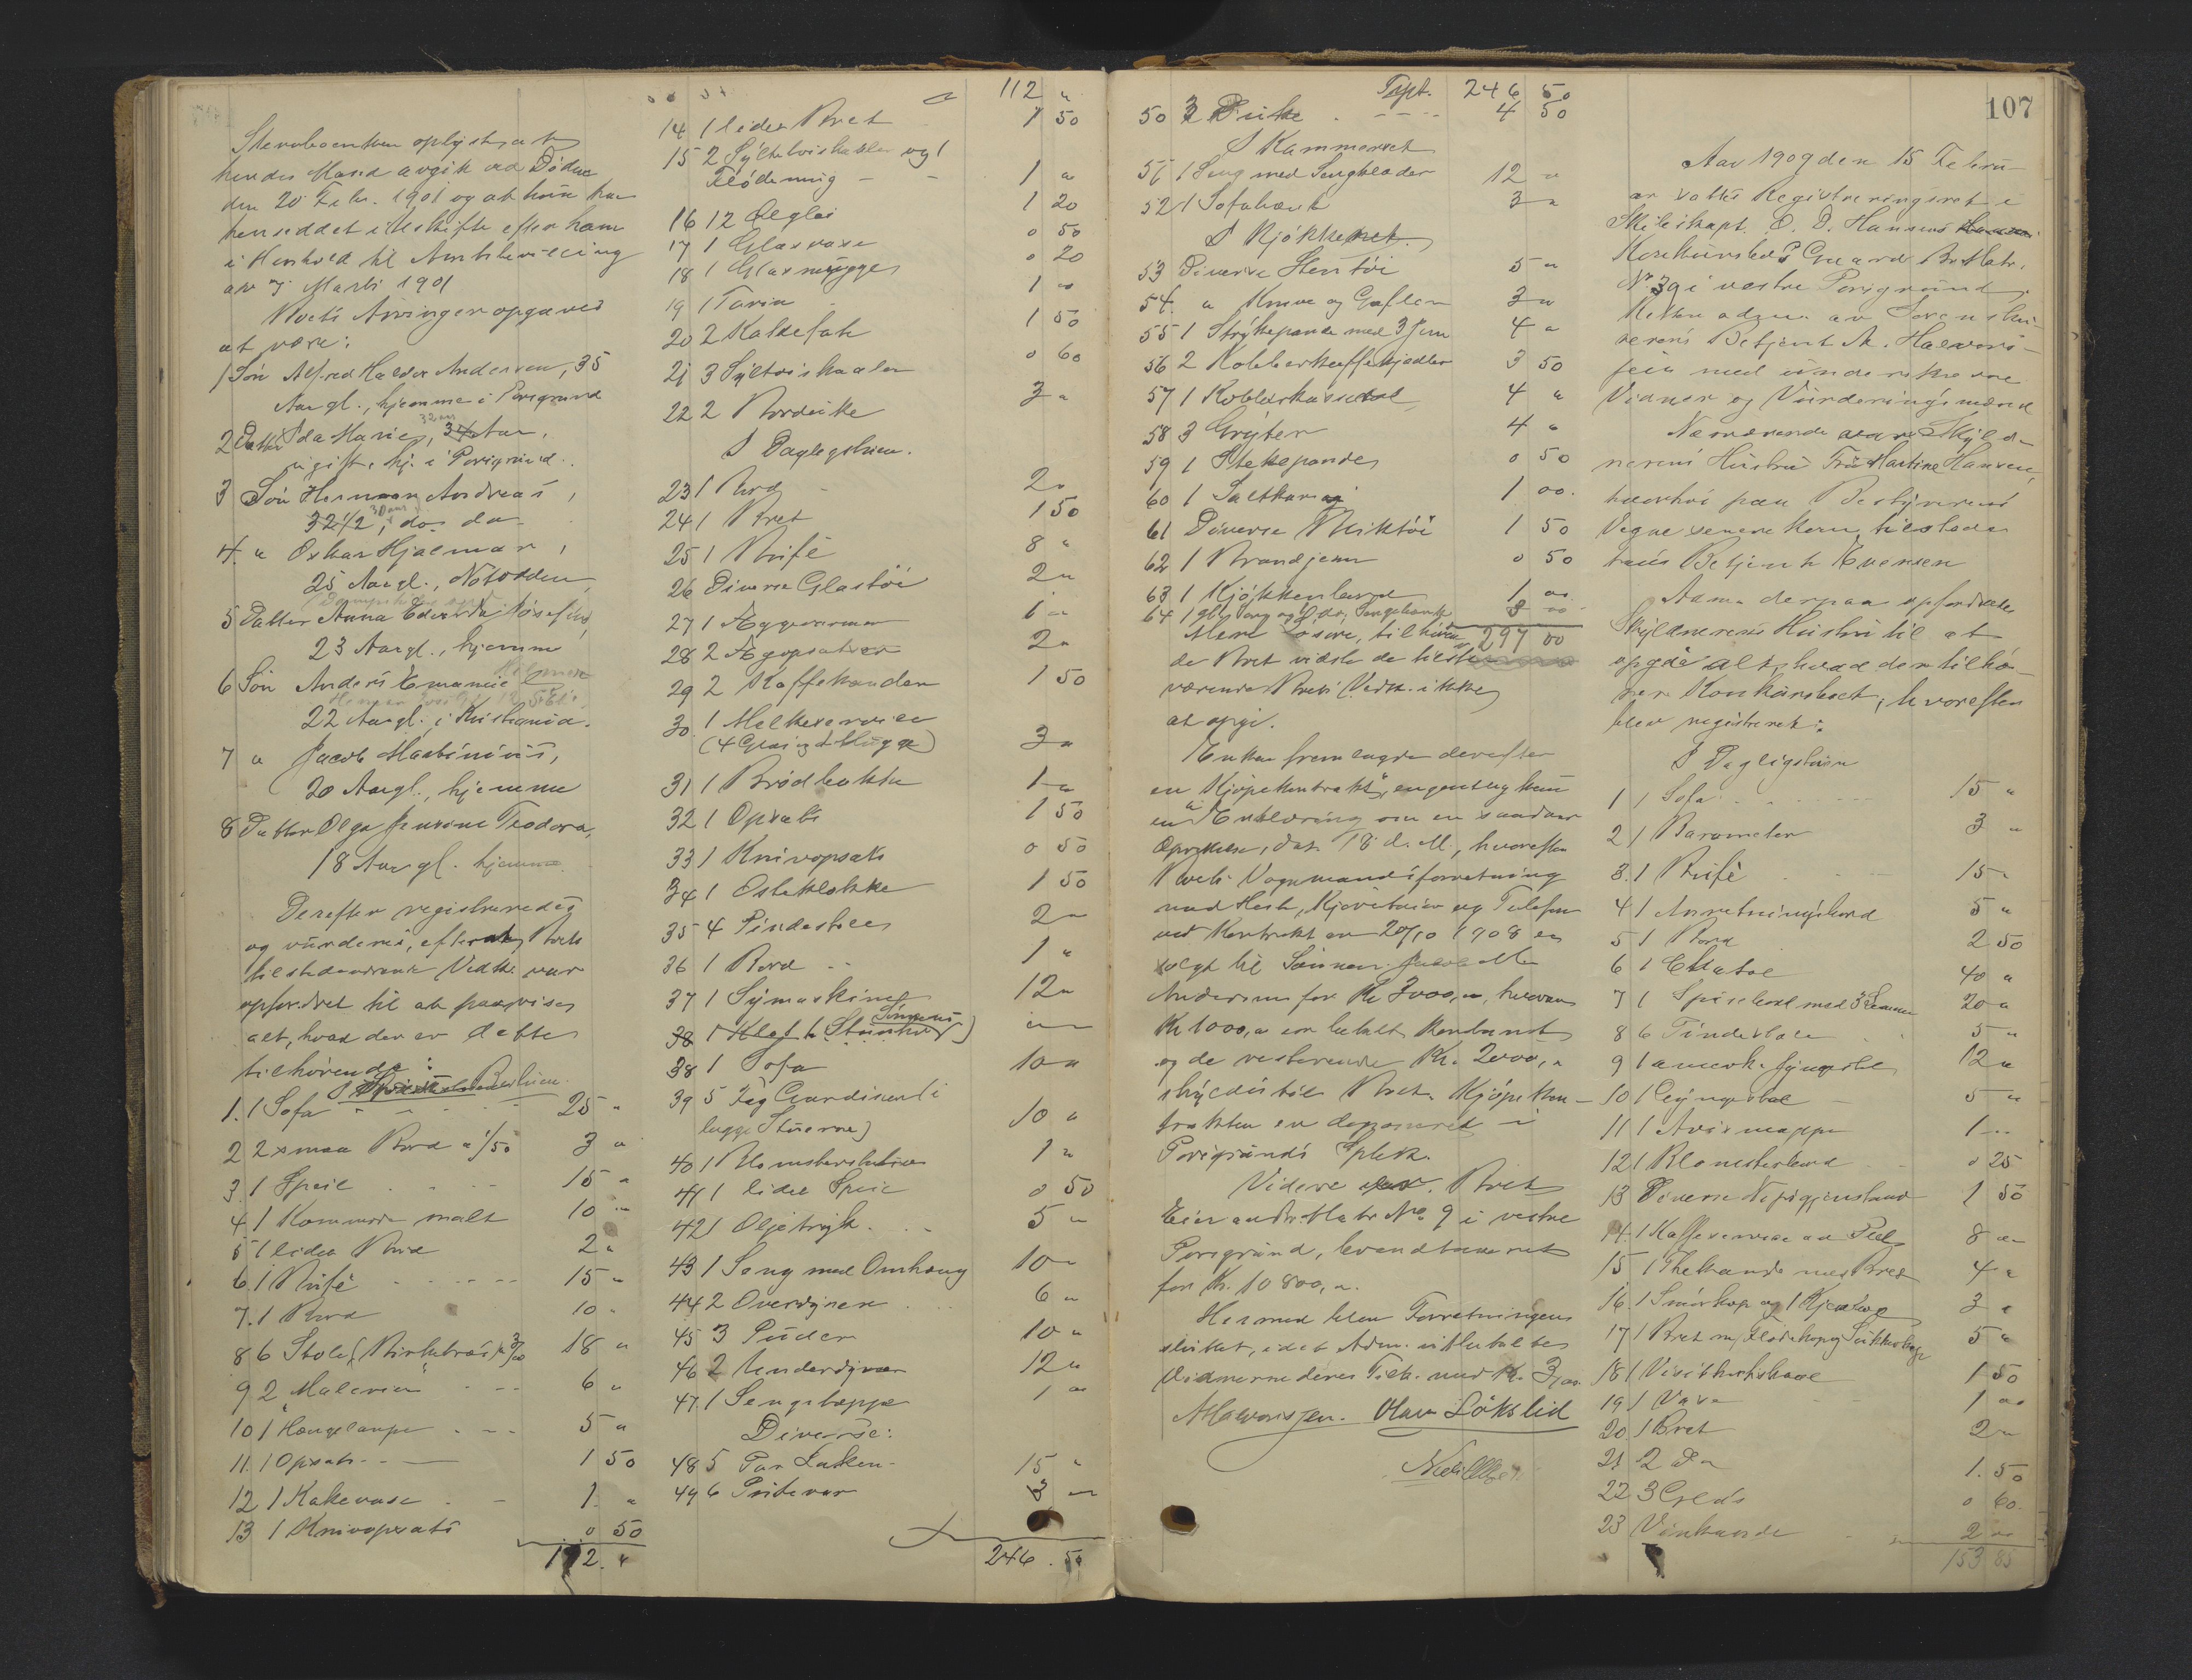 Stervboenken oplyste, at
hendes Mand avgik ved Döden
den 20 Febr. 1901 og at hun har
henseddet i Uskifte efter ham
i Henhold til Amtsbevilling
av 7 Marts 1901
Boets Arvinger opgaves
at være:
1 Sön Alfred Halder Andersen, 35
Aar gl., hjemme i Porsgrund
2 Datter Ida Marie, 34 Aar,
32 aar
ugift, hj. i Porsgrund.
3 Sön Herman Andreas,
30 aar
32 1/2, do. do.
4. " Oskar Hjalmar,
25 Aar gl., Notodden
5 Datter Anna Edvarda Josefine,
23 Aar gl., hjemme
6 Sön Anders Emanuel
22 Aar gl. i Kristiania.
7 " Jacob Martinius,
20 Aar gl., hjemme
8 Datter Olga Jensine Teodora,
18 Aar gl. hjemme.
Derefter registreredes
og vurderes, efterat Boets
tilstedeværende Vedk. var
opfordret til at paavise
alt, hvad der er dette
tilhörende:
1. 1 Sofa 25 "
2 2 smaa Bord a 1/50 3 "
3. 1 Speil 15 "
4. 1 Kommode malt 10 "
5 1 lidet Bord 2 "
6. 1 Büfè 15 "
7. 1 Bord 10 "
8 6 Stole (Birketræs) a 3/00 18 "
9 2 "Malerier" 6 "
10 1 Hængelampe 5 "
11. 1 Opsats 1 50
12 1 Kakevase 1. "
13 1 Knivopsats 0 50
112. "
112 "
14 1 lidet Bret 1 50
15 2 Syltetöiskaaler og 1
Flödemug 1 "
16 12 Ölglas 1 20
17 1 Glasvase 0 50
18 1 Glasmugge 0 20
19 1 Tarin 1 "
20 2 Kaldefat 1 50
21 3 Syltöiskaaler 0 60
22 2 Borddüke 3 "
I Dagligstuen.
23 1 Bord 2 "
24 1 Bret 1 50
25 1 Büfè 8 "
26 Diverse Glastöi 2 "
27 1 Æggevarmer 1 "
28 2 Ægopsatser 2 "
29 2 Kaffekander 1 50
30 1 Melkeservise
(4 Glas og 1 Mugge) 3 "
31 1 Brödbakke 1 "
32 1 Opsats 1 50
33 1 Knivopsats 0 50
34 1 Osteklokke 1 50
35 4 Pindestoler 2 "
36 1 Bord 1 "
37 1 Symaskine 12 "
38
38 1 Sofa 10 "
39 5 Fag Gardiner (i
begge Stuerne) 10 "
40 1 Blomsterstativ 1 "
41 1 lidet Speil 0 50
42 1 Oljetryk 5 "
43 1 Seng med Omhæng 10 "
44 2 Overdyner 6 "
45 3 Püder 10 "
46 2 Underdyner 12 "
47 1 Sengeteppe 1 "
Diverse:
48 5 Par Laken 15 "
49 6 Putevar 3 "
246. 50
Tspt. 246 50
50 3 Duke 4 50
I Kammerset
51 1 Seng med Sengklæder 12 "
52 1 Sofabænk 3 "
I Kjökkenet.
53 Diverse Stentöi 5 "
54. " Knive og Gafler 3 "
55 1 Strykepande med 3 Jern 4 "
56 2 Kobberkaffekjedler 3 50
57 1 Kobberkasserol 4 "
58 3 Gryter 4 "
59 1 Stekepande 0 50
60 1 Saltkar 1 00.
61 Diverse Bliktöi 1 50
62 1 Brandjern 0 50
63 1 Kjökkenbord 1 00
64
297 00
Mere Lösöre, tilhörende
Boet vidste de tilstede-
værende Boets Vedk. ikke
at opgi.
Enken fremlagde derefter
en Kjöpekontrakt,
en Erklæring om en saadan
Oprettelse, dat. 18 d. M., hvorefter
Boets Vognmandsforretning
med Hest, Kjöretöier og Telefon
ved Kontrakt av 20/10 1908 er
solgt til Sönnen Jacob M.
Andersen for Kr. 3000,", hvorav
Kr 1000," er betalt kontant
og de resterende Kr. 2000,"
skyldes til Boet. Kjöpekon-
trakten er deponeret i
Porsgrunds Spbk.
Videre Boet
Matr. No 9 i vestre
Porsgrund, brandtakseret
for Kr. 10 800,".
Hermed blev Forretningen
sluttet, idet Adm. utbetalte
Vidnerne deres Tilk. med Kr. 3,00.
M Halvorsen. Olav Lökslid
107
Aar 1909 den 15 Febru-
ar sattes Registreringsret i
Skibskapt. O. D. Hansens
Konkursbos Gaard Matr.
No 39 i vestre Porsgrund.
Retten adm. av Sorenskri-
verens Betjent M. Halvorsen
med underskrevne
Vidner og Vurderingsmænd
Nærværende var Skyld-
nerens Hustru Fru Martine Hansen,
hvorhos paa Bestyrerens
Vegne senere kom tilstede
hans Betjent Evensen
Adm. derpaa opfordrede
Skyldnerens Hustru til at
opgi alt, hvad der tilhö-
rer Konkursboet, hvorefter
blev registreret:
I Dagligstuen
1 1 Sofa 15 "
2 1 Barometer 3 "
3. 1 Büfè 15 "
4 1 Anretningsbord 5 "
5 1 Bord 2 50
6 1 Chatol 40 "
7 1 Spisebord med 3 Lemmer 20 "
8 6 Pindestoler 5 "
9 1 amerk. Gyngestol 12 "
10 1 Gyngestol 5 "
11 1 Avismappe 1 "
12 1 Blomsterbord 0 25
13 Diverse Nipsgjenstande 1 50
14. 1 Kaffeservise av Plet 8 "
15 1 Thekande med Bret 4 "
16. 1 Smörkop og 1 3 "
17 1 Bret m/ Flödekop og Sukkerkop 5 "
18 1 Visitkortskaal 1 50
19 1 Vase 1 00
20 1 Bret 2 "
21 2 Do 1. 50
22 3 Grells 0 60.
23 Vinkande 2 00
153 85